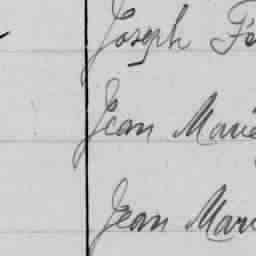 Joseph Fé
Jean Marie
Jean Mari